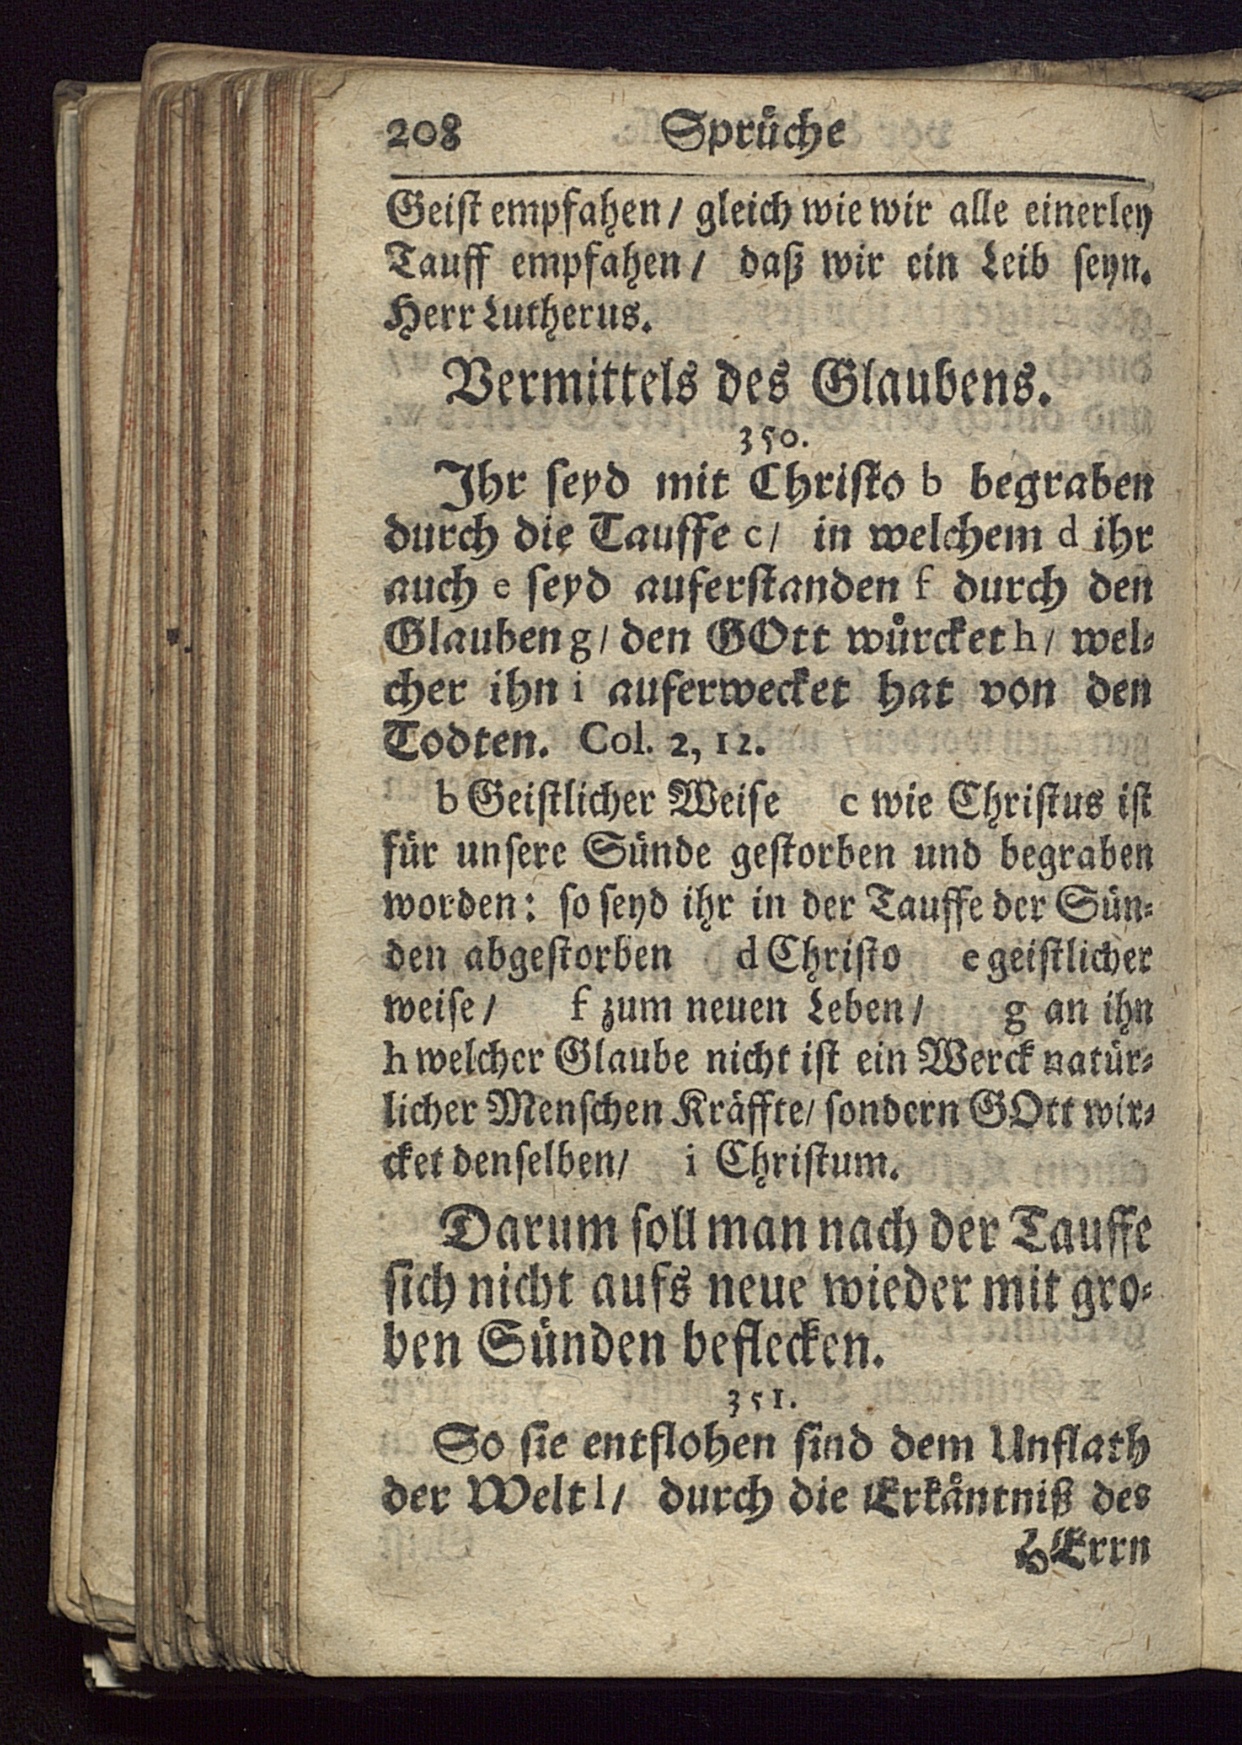 208 Sprüche
Geist empfahen/ gleich wie wir alle einerley
Tauff empfahen/ daß wir ein Leib seyn.
Herr Lutherus.
Vermittels des Glaubens.
350.
Ihr seyd mit Christo b begraben
durch die Tauffe c/ in welchem d ihr
auch e seyd auferstanden f durch den
Glauben g/ den GOtt wůrcket h/ wel-
cher ihn i auferwecket hat von den
Todten. Col. 2, 12.
b Geistlicher Weise c wie Christus ist
für unsere Sünde gestorben und begraben
worden: so seyd ihr in der Tauffe der Sün-
den abgestorben d Christo e geistlicher
weise/ f zum neuen Leben/ g an ihn
h welcher Glaube nicht ist ein Werck natür-
licher Menschen Kräffte/ sondern GOtt wir-
cket denselben/ i Christum.
Darum soll man nach der Tauffe
sich nicht aufs neue wieder mit gro-
ben Sünden beflecken.
351.
So sie entflohen sind dem Unflath
der Welt l/ durch die Erkåntniß des
HErrn